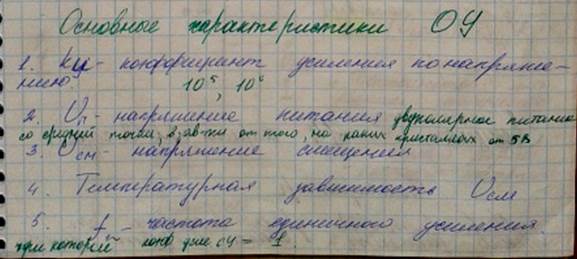 Основные характеристики ОУ
1. Ku - коэффициент усиления по напряже-
нию. 10⁵, 10⁶
2. Uп - напряжение питания двуполярное питание
со средней точки, в зав-ти от того, на каких кристаллах от 5В
3. Uсм - напряжение смещения
4. Температурная зависимость Uсм
5. f - частота единичного усиления.
при которой коэф усил ОУ = 1